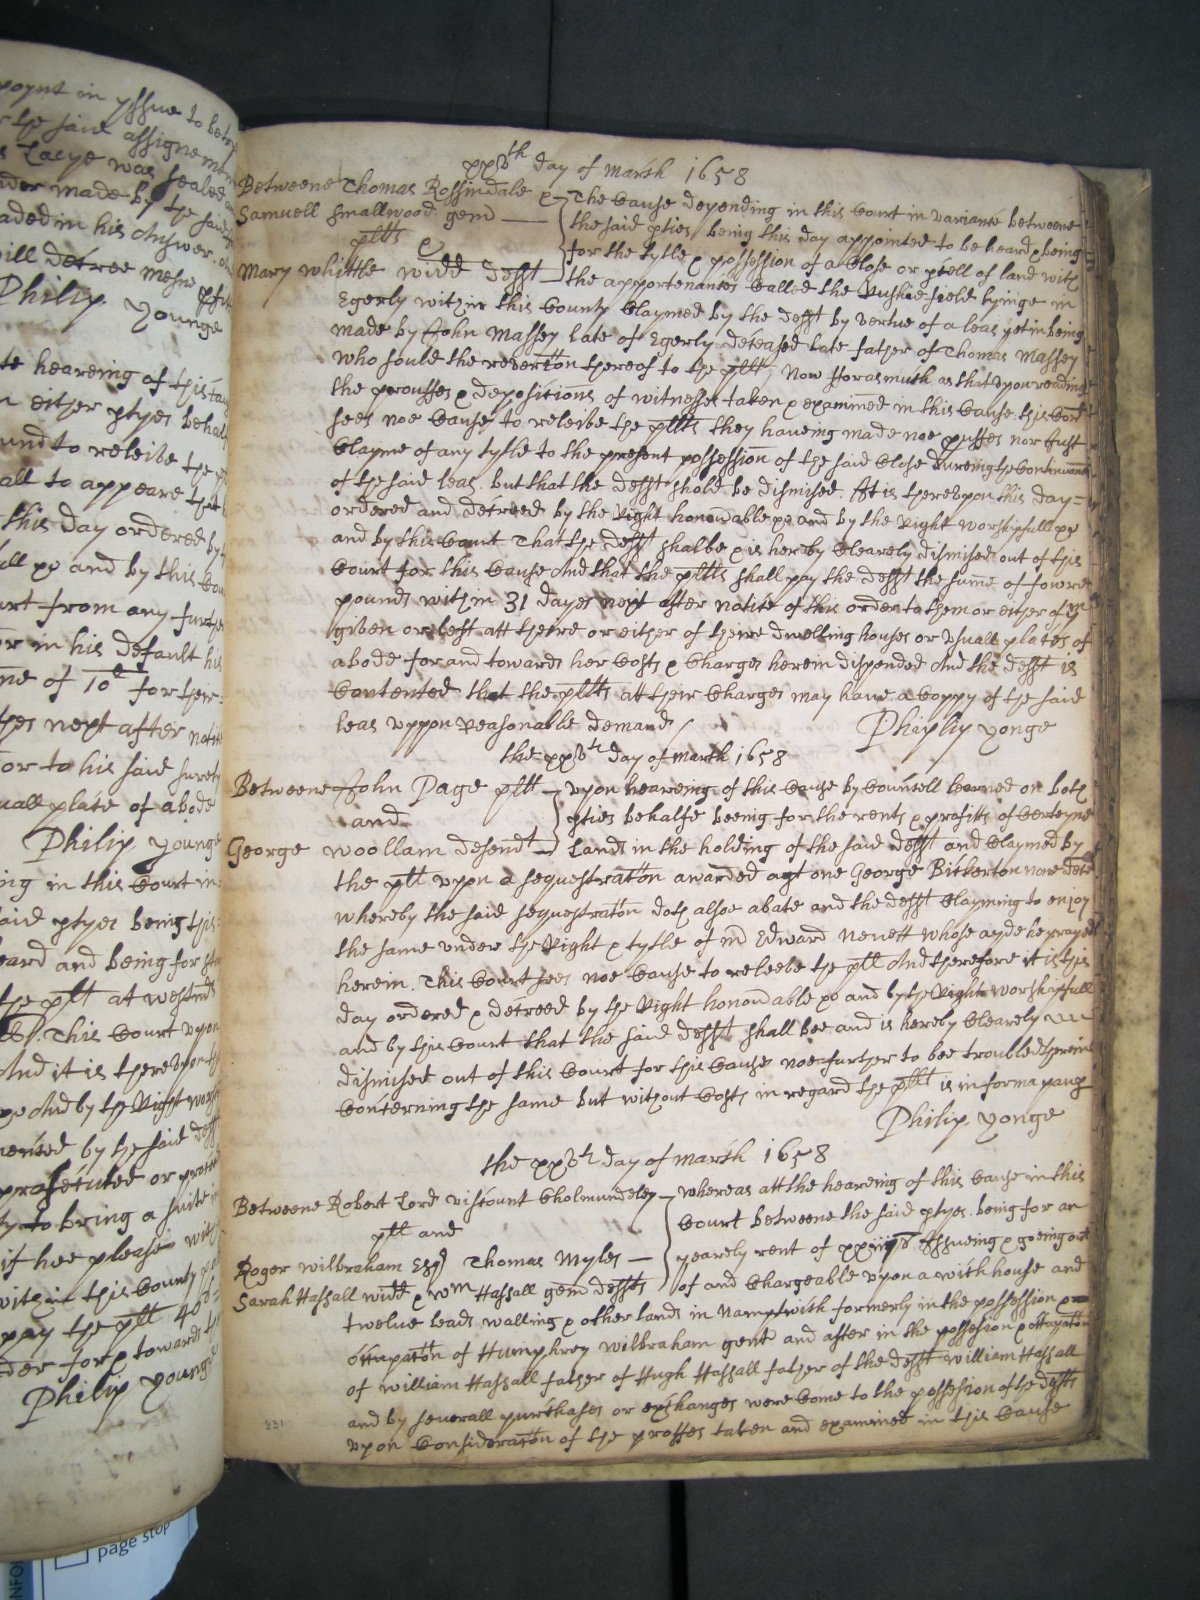 poynt in yssue to be
the said assignemt
Lacye was sealed
made by the said
in his Answer
will decree mesne
Philip Younge
heareing of this
either ptyes behalf
to releive the
all to appeare that
this day ordered by
and by this
from any further
in his default his
of 10s for their
next after notice
or to his said surety
usuall place of abode
Philip Younge
in this Court in
said ptyes being this
heard and being for
the plt at
This Court upon
And it is thereupon
And by the Right
by the said deft
prosecuted or
to bring a suite
if hee please
within this County
pay the plt 40s
for & towards
Philip Younge
xxvth day of March 1658
Betweene Thomas Rossindale & The Cause depending in this Court in variance betweene
Samuell Smallwood gent the said pties being this day appointed to be heard & being
pltts & for the tytle & possession of a Close or pcell of land with
Mary Whittle widd defft the apportenances Called the Rushie field lyinge in
Egerly within this County Claymed by the defft by vertue of a leas yet in being
made by John Massey late of Egerly deceased late father of Thomas Massey
who sould the revercon thereof to the pltts Now Forasmuch as that upon reading
the prousses & depositions of witnesses taken & examined in this Cause this Cort
sees noe Cause to releive the pltts they haveing made noe prusses nor Just
Clayme of any tytle to the present possession of the said Close dureing the Continuance
of the said leas but that the defft shold be dismised. It is thereupon this day
ordered and decreed by the Right honorable &c and by the Right worshipfull &c
and by this Court That the defft shalbe & is hereby Clearely dismised out of this
Court for this Cause And that the pltts shall pay the defft the sume of fowre
pounds within 31 dayes next after notice of this order to them or either of ym
given or left att theire or either of theire dwelling houses or Usuall places of
abode for and towards her Costs & Charges herein dispended And the defft is
Contented that the pltts att their Charges may have a Coppy of the said
leas uppon Reasonable demand / Phiplip Yonge
the xxvth day of March 1658
Betweene John Page pltt Upon heareing of this Cause by Councell learned on both
and pties behalfe beeing for the rents & profitts of Certeyne
George Woollam defendt Lands in the holding of the said defft and Claymed by
the pltt upon a sequestracon awarded agt one George Bickerton now decd
whereby the said sequestracon doth alsoe abate and the defft Clayming to enjoy
the same under the Right & tytle of Edward Nevett whose ayde he prayed
herein. This Court sees noe Cause to releeve the pltt And therefore it is this
day ordered & decreed by the Right honorable &c and by the Right worshipfull
and by this Court that the said defft shall bee and is hereby Clearely
dismised out of this Court for this Cause noe further to bee troubled therein
Concerning the same but without Costs in regard the pltt is in forma paup
Philip Yonge
the xxvth day of March 1658
Betweene Robert Lord viscount Cholmundeley Whereas att the heareing of this Cause in this
pltt and Court betweene the said ptyes being for an
Roger Wilbraham Esqr Thomas Myles yearely rent of Issueing & goeing out
Sarah Hassall widd & Wm Hassall gent deffts of and Chargeable upon a wich house and
twelve leads walling & other lands in Namptwich formerly in the possession &
occupacon of Humphrey Wilbraham gent and after in the possession & occupacon
of William Hassall father of Hugh Hassall father of the defft William Hassall
and by severall purchases or exchanges were Come to the possession of the deffts
upon Consideracon of the prosses taken and examined in this Cause
331
page stop